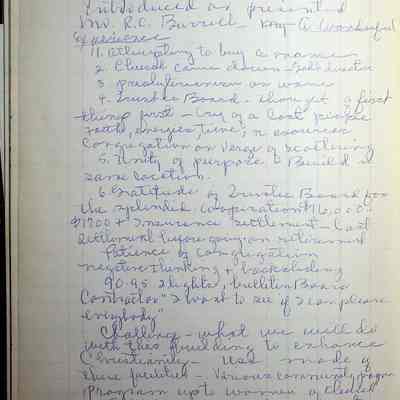 Introduced or presented
Mr. R.C. Burrell - May - A Wonderful
Experience
1. Attempting to buy a manse
2. Church came down - God's director
3. presbyterian or
4. Trustee Board - thought of first
things first - Cry of a lost people
faith, energies, time, resources
Congregation on verge of scattering
5. Unity of purpose - Build in
same location.
6. Gratitude of Trustee Board for
the splendid cooperation 16,000
$1700 + Insurance settlement - last
settlement before going on retirement
Patience of Congregation
negative thinking + backsliding
90-95 slights, bulletin Board
Contractor "I want to see if I can please
everybody"
Challenge - what we will do
with this building to enhance
Christianity - use made of
these facilities - Various community
program up to women of Church